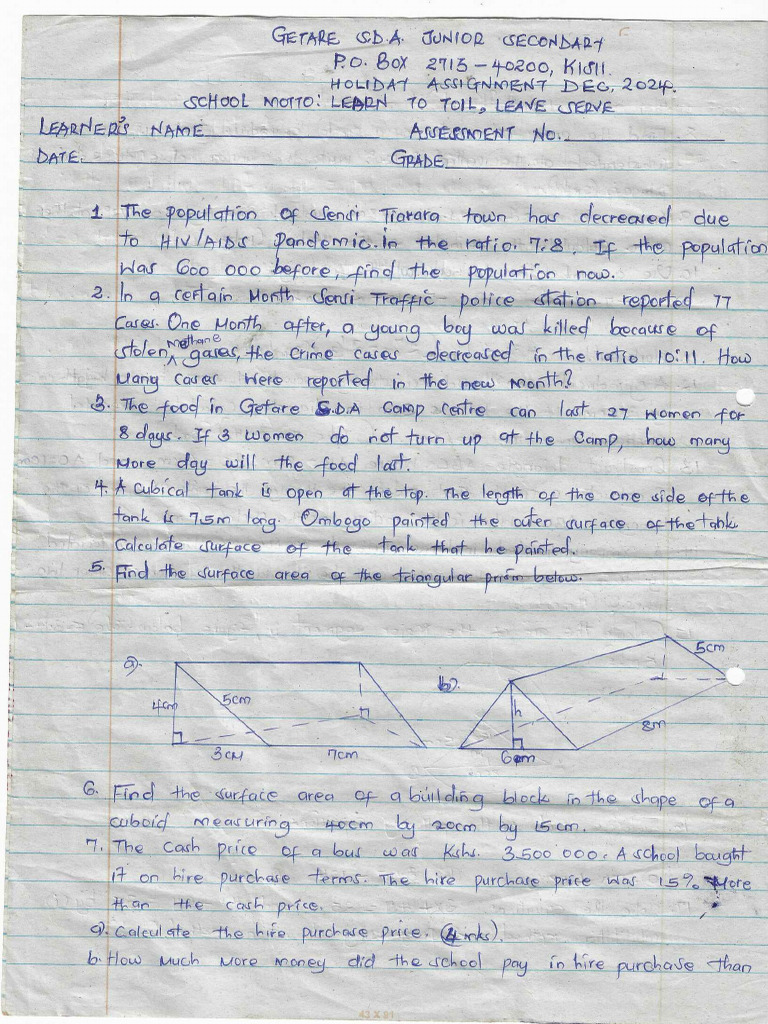 GETARE S.D.A. JUNIOR SECONDARY
P.O. BOX 2713 - 40200, KISII.
HOLIDAY ASSIGNMENT DEC, 2024.
SCHOOL MOTTO: LEARN TO TOIL, LEAVE SERVE
LEARNER'S NAME ASSESSMENT NO.
DATE: GRADE
1 The population of Sensi Tiarara town has decreased due
to HIV/AIDS Pandemic. in the ratio. 7:8. If the population
was 600 000 before, find the population now.
2. In a certain Month Sensi Traffic police station reported 77
Cases. One Month after, a young boy was killed because of
stolen methane gases, the crime cases decreased in the ratio 10:11. How
Many cases were reported in the new month?
3. The food in Getare S.D.A Camp centre can last 27 women for
8 days. If 3 women do not turn up at the Camp, how many
More day will the food last.
4. A cubical tank is open at the top. The length of the one side of the
tank is 7.5m long. Ombogo painted the outer surface of the tank
Calculate surface of the tank that he painted.
5. Find the surface area of the triangular prism below.
a). 4cm 5cm 3cm 7cm
b). h 6cm 5cm 8m
6. Find the surface area of a building block in the shape of a
cuboid measuring 40cm by 20cm by 15cm.
7. The cash price of a bus was Kshs. 3.500 000. A school bought
it on hire purchase terms. The hire purchase price was 15% More
than the cash price.
a). Calculate the hire purchase price. (4mks).
b. How Much More money did the school pay in hire purchase than